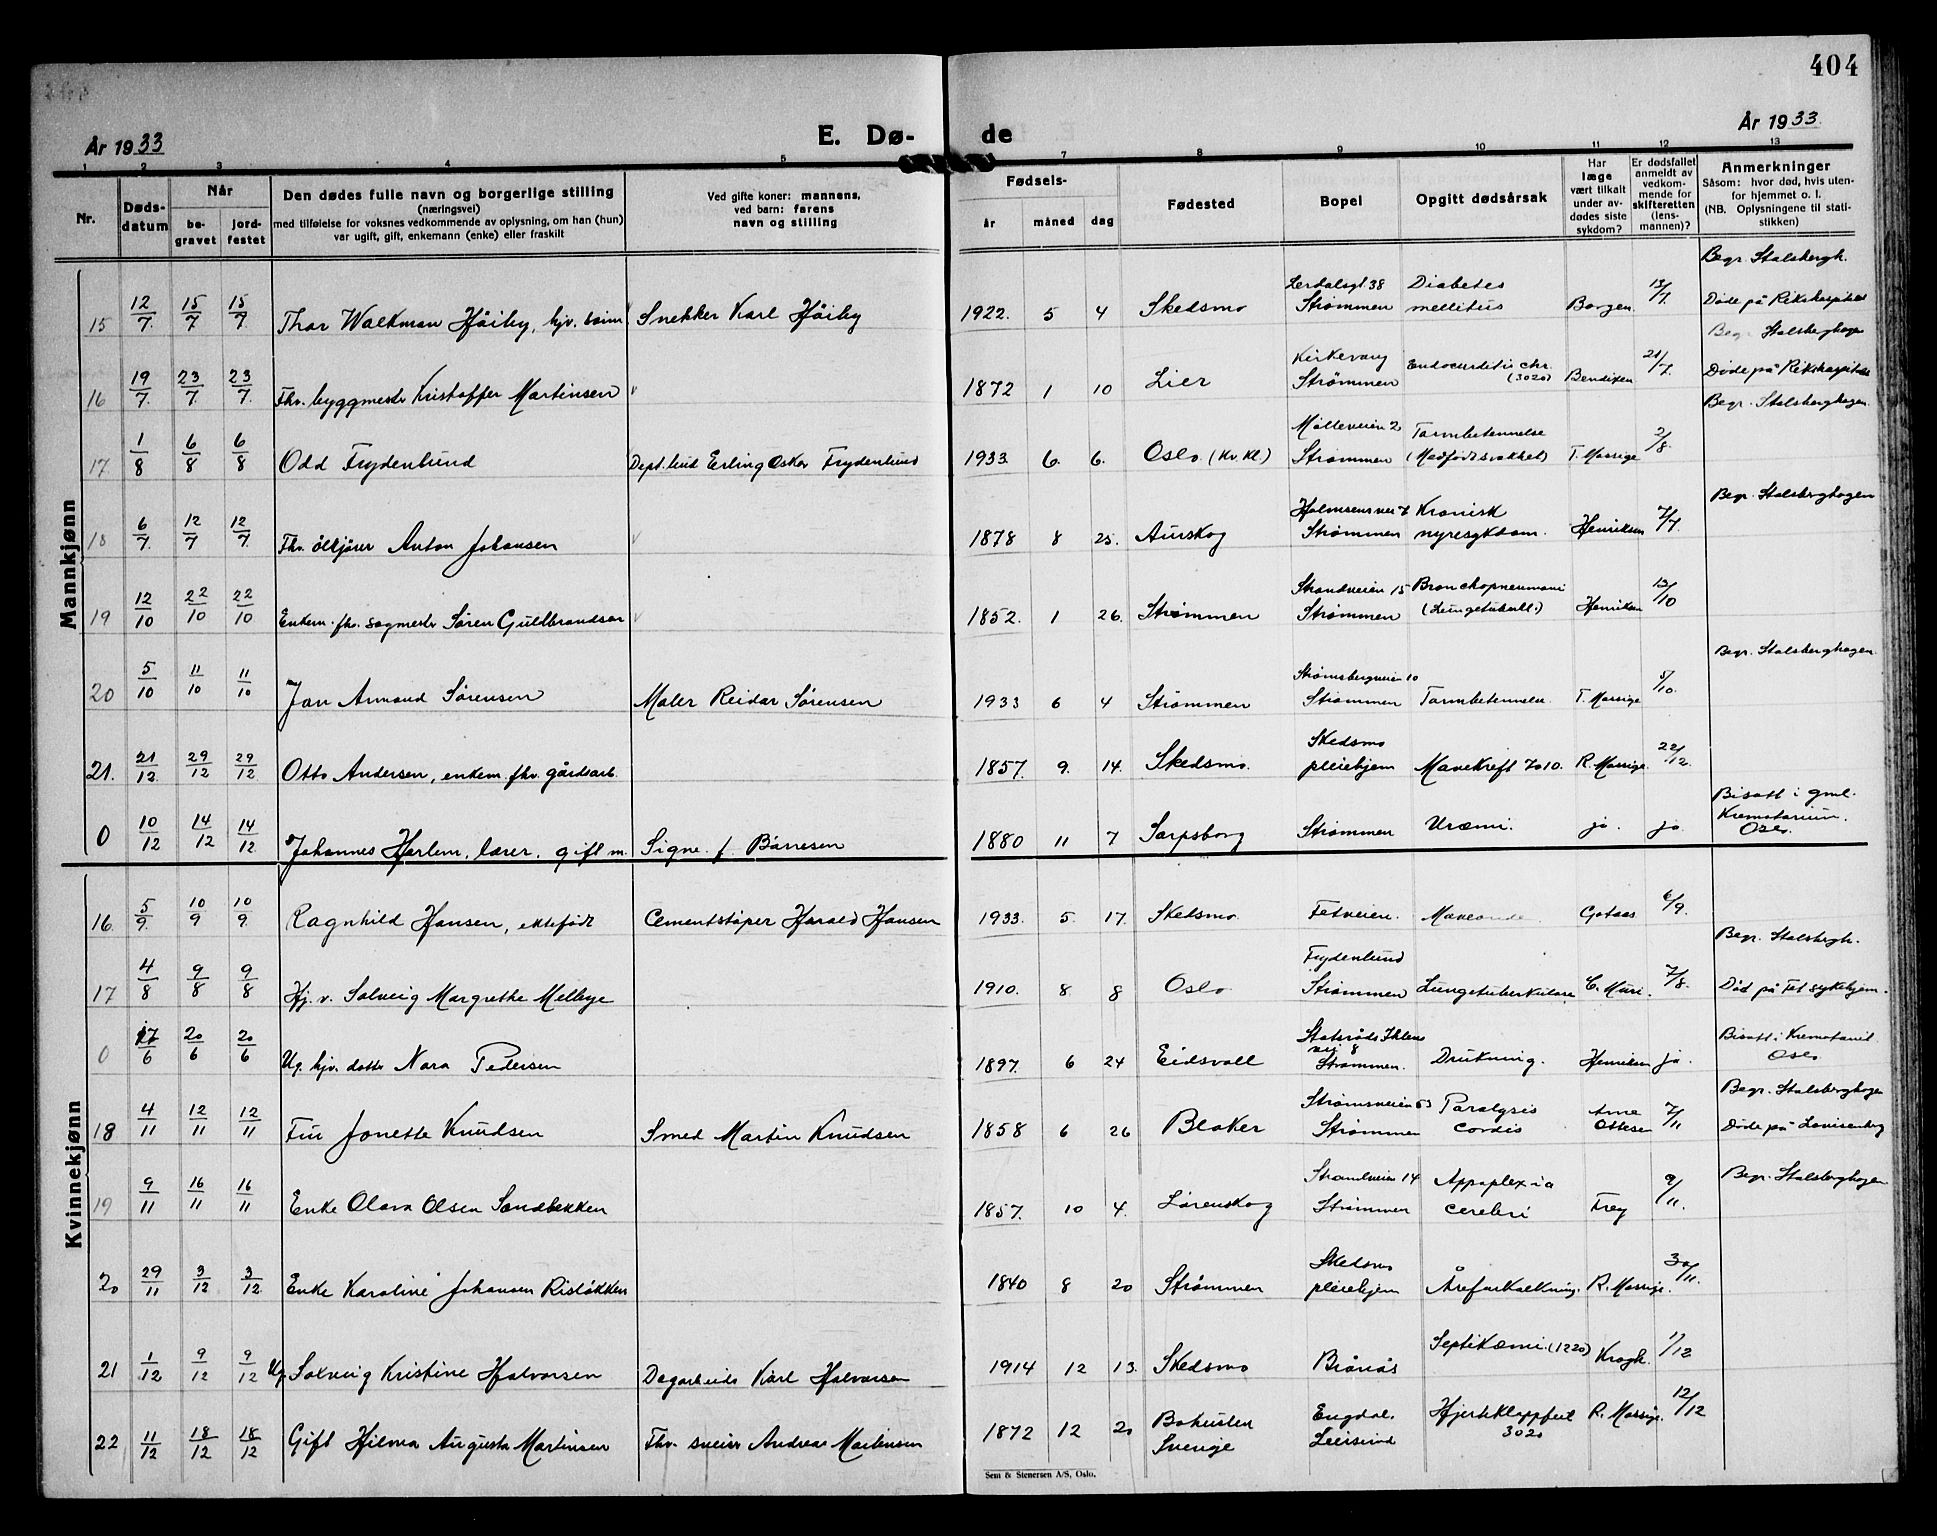 404
År 1933
E. Dø-
de
År 1933
1 2 3 4 5 7 8 9 10 11 12 13
Nr.
Døds-
datum
Når
be-
gravet
jord-
festet
Den dødes fulle navn og borgerlige stilling
(næringsvei)
med tilføielse for voksnes vedkommende av oplysning, om han (hun)
var ugift, gift, enkemann (enke) eller fraskilt
Ved gifte koner: mannens,
ved barn: farens
navn og stilling
Fødsels-
år måned dag
Fødested
Bopel
Opgitt dødsårsak
Har
læge
vært tilkalt
under av-
dødes siste
sykdom?
Er dødsfallet
anmeldt av
vedkom-
mende for
skifteretten
(lens-
mannen)?
Anmerkninger
Såsom: hvor død, hvis uten-
for hjemmet o. l.
(NB. Oplysningene til stati-
stikken)
Mannkjønn
15 12/7. 15/7 15/7. Thor Walkman Høiby, hjv. sønn Snekker Karl Høiby 1922. 5 4 Skedsmo Lerdalsgt 38 Strømmen Diabetes mellitus Borgen. 13/7. Begr. Stalsbergh. Døde på Rikshospitalet
16 19/7. 23/7. 23/7. Fhv. byggmester Kristoffer Martinsen 1872 1 10 Lier Kirkevang Strømmen Endocarditis chr. (3020) Bendixen 21/7. Begr. Stalsberghagen Døde på Rikshospitalet
17. 1/8 6/8 6/8 Odd Frydenlund Dept.bud Erling Oskar Frydenlund 1933. 6. 6. Oslo. (Kv. Kl.) Mølleveien 2 Strømmen Tarmbetennelse (Medfødt svakhet) T. Massige 2/8. Begr. Stalsberghagen.
18 6/7. 12/7 12/7. Fhv. ølkjører Anton Johansen 1878 8 25. Aurskog Holmsensvei 7 Strømmen Kronisk nyresykdom. Henriksen 7/7. Begr. Stalsberghagen
19 12/10 22/10 22/10 Enkem. fhv. sagmester Søren Guldbrandsen 1852. 1 26. Strømmen Strandveien 15 Strømmen Bronchopneumoni Henriksen 13/10
20 5/10 11/10 11/10 Jan Armand Sørensen Maler Reidar Sørensen 1933 6 4 Strømmen Strømsbergveien 10 Strømmen Tarmbetennelse. T. Massige 5/10. Begr. Stalsberghagen.
21. 21/12. 29/12 29/12 Otto Andersen, enkem. fhv. gårdsarb. 1857. 9. 14. Skedsmo. Skedsmo pleiehjem Mavekreft 7010. R. Massige. 22/12.
0 10/12 14/12 14/12. Johannes Harlem, lærer, gift m. Signe f. Børresen 1880 11 7 Sarpsborg Strømmen Uræmi. ja. ja. Bisatt i gml. Krematorium. Oslo.
Kvinnekjønn
16. 5/9. 10/9 10/9. Ragnhild Hansen, ektefødt Cementstøper Harald Hansen 1933. 5. 17. Skedsmo. Fetveien. Maveonde. Gotaas 6/9.
17 4/8 9/8 9/8 Hj. v. Solveig Margrethe Melbye 1910. 8. 8 Oslo Frydenlund Strømmen Lungetuberkulose C. Muri. 7/8. Begr. Stalsbergh. Død på Fet sykehjem.
0 17/6 20/6 20/6 Ug. hjv. datter Nora Pedersen 1897. 6 24 Eidsvoll Statsråds Ihlens vei 8 Strømmen. Drukning. Henriksen ja. Bisatt i Krematoriet Oslo
18 4/11 12/11 12/11 Fru Jonette Knudsen Smed Martin Knudsen 1858 6 26 Blaker Strømsveien 53 Strømmen Paralysis cordis Arne Ottesen 7/11 Begr. Stalsberghagen Døde på Lovisenberg
19 9/11 16/11 16/11 Enke Olava Olsen Sandbekken 1857. 10 4. Lørenskog Strandveien 14 Strømmen Appoplexia cerebri Frey 9/11. Begr. Stalsberghagen
20 29/11 3/12 3/12. Enke Karoline Johansen Risløkken 1840 8 20 Strømmen Skedsmo pleiehjem Åreforkalkning. R. Massige. 30/11.
21 1/12 9/12 9/12 Ug. Solveig Kristine Halvorsen Dagarbeider Karl Halvorsen 1914 12 13. Skedsmo Brånås Septikæmi. (1220) Krogh. 1/12
22 11/12 18/12 18/12 Gift Hilma Augusta Martinsen Fhv. sveiser Andreas Martinsen 1872 12 20 Bohuslen Sverige Engdal. Leirsund Hjerteklappfeil 3020 R. Massige. 12/12
Sem & Stenersen A/S, Oslo.